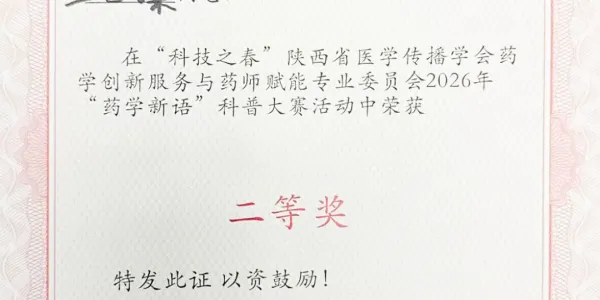 在“科技之春”陕西省医学传播学会药
学创新服务与药师赋能专业委员会2026年
“药学新语”科普大赛活动中荣获
二等奖
特发此证 以资鼓励!